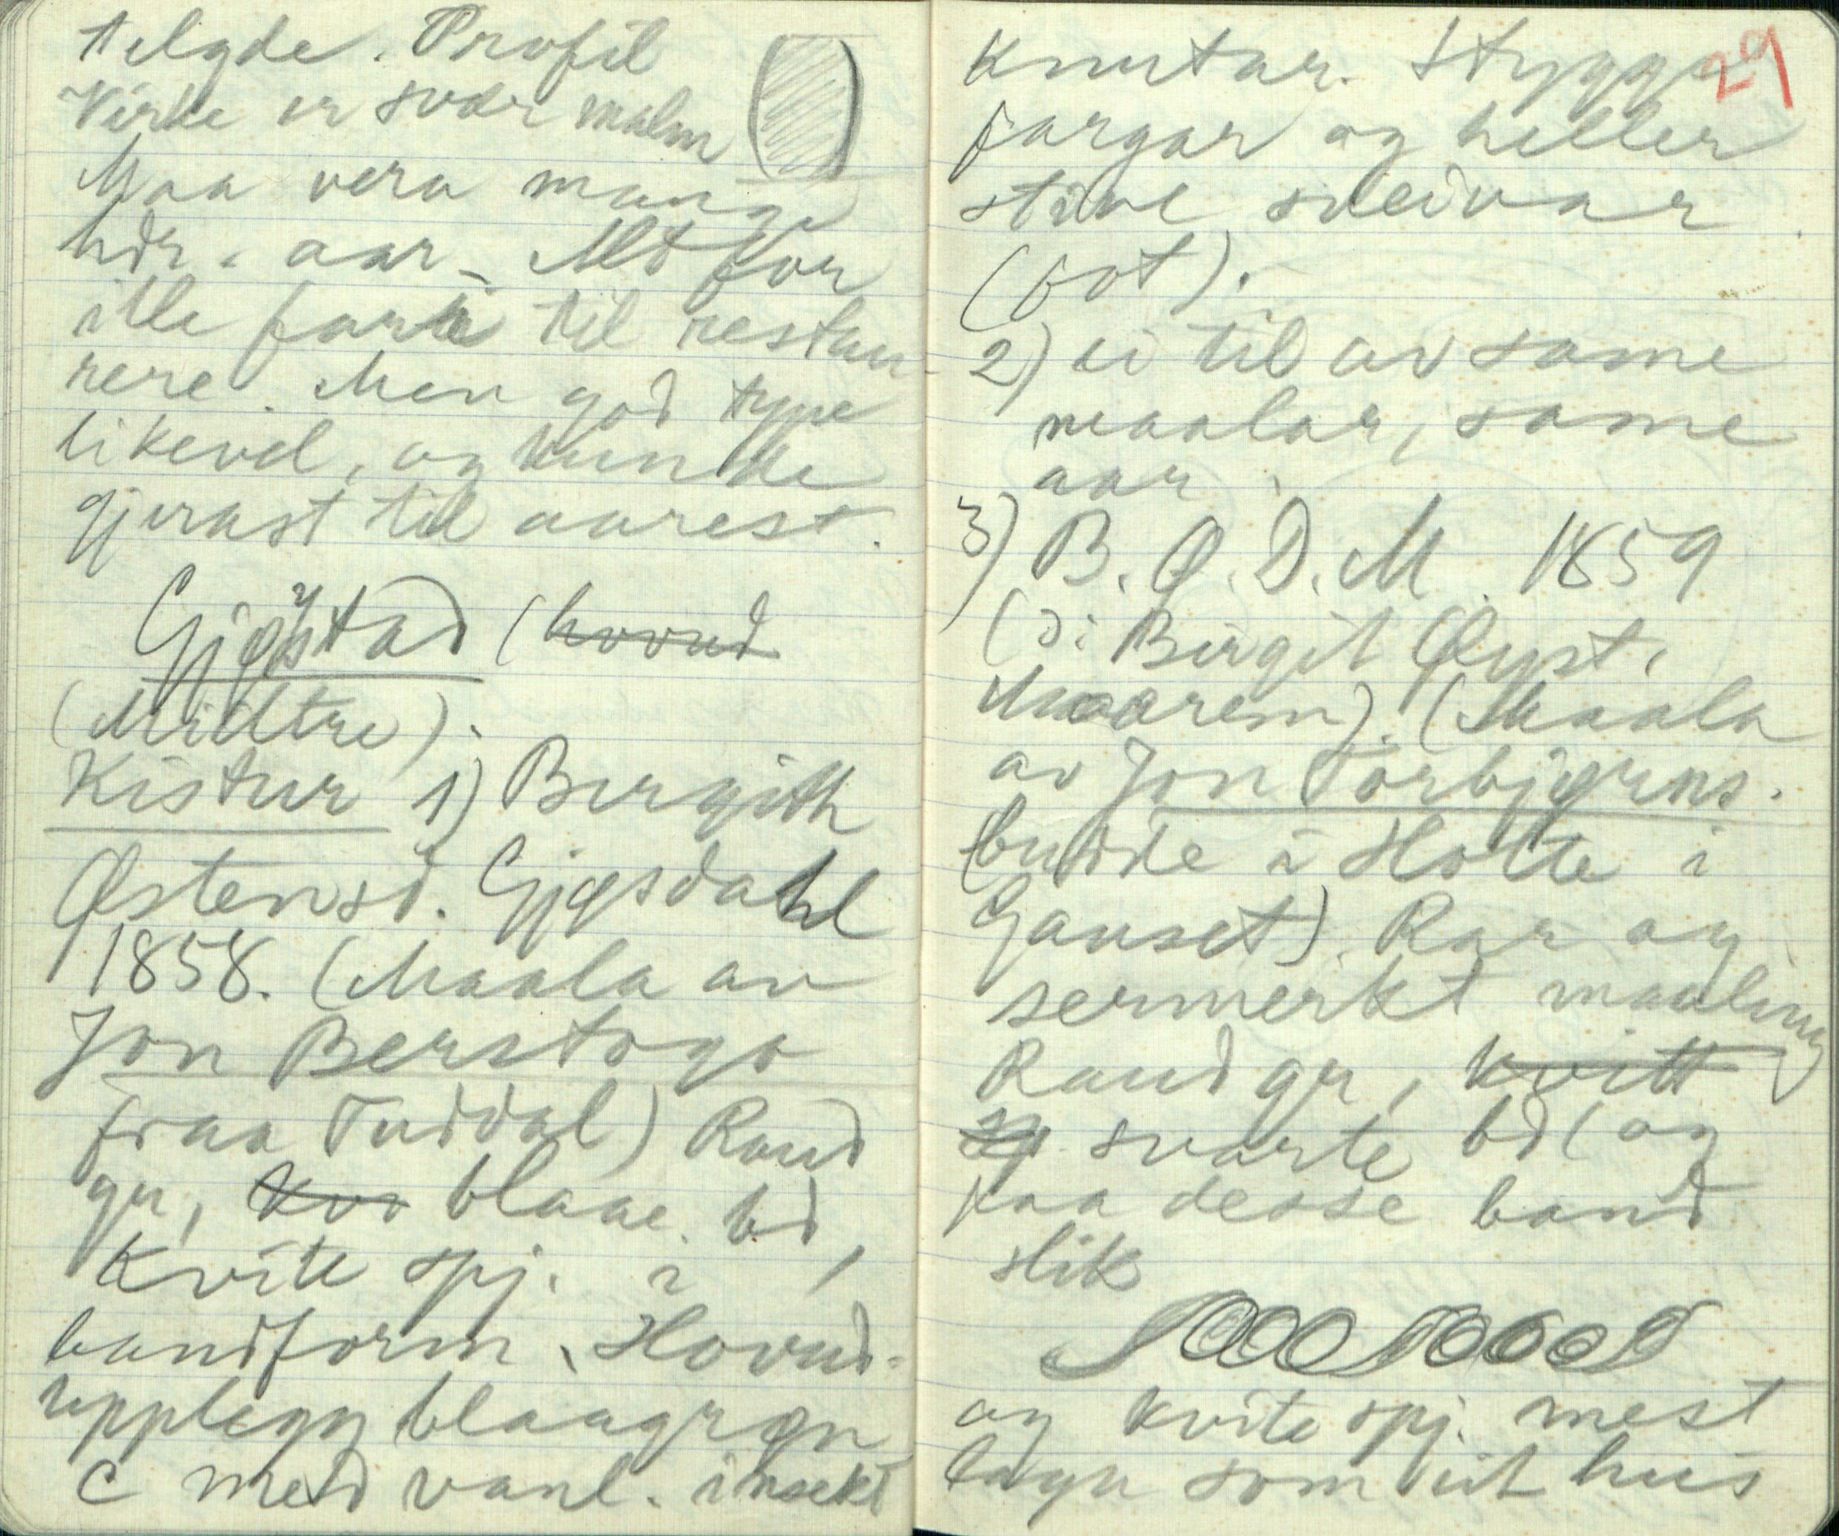 telgde. Profil
Virke er svær malm
Maa vera mange
hdr. aar. Alt for
ille fari til restau-
rere. Men god type
likevel, og kunde
gjerast til aarest.
Gjøystad (hovud
(Midtre).
Kistur 1) Birgith
Østensd. Gjøsdahl
1858. (Maala av
Jon Berstogo
fraa Tuddal) Raud
gr, kvi blaae bd,
Kvite spj. i
bandform. Hovud-
upplegg blaagrøn
C med vanl. insekt
29
Knutar. Stygge
fargar og heller
stive sveivar
(fot).
2) ei til av same
maalar, same
aar.
3) B. Ø. D. M. 1859
(ɔ: Birgit Øyst.
Maarem). (Maala
av Jon Torbjørns.
(budde i Holte i
Gauset). Rar og
sermerkt maaling
Raud gr, kvitt
sp svarte bd (og
paa desse band
slik
og kvite spj. mest
laga som eit hus